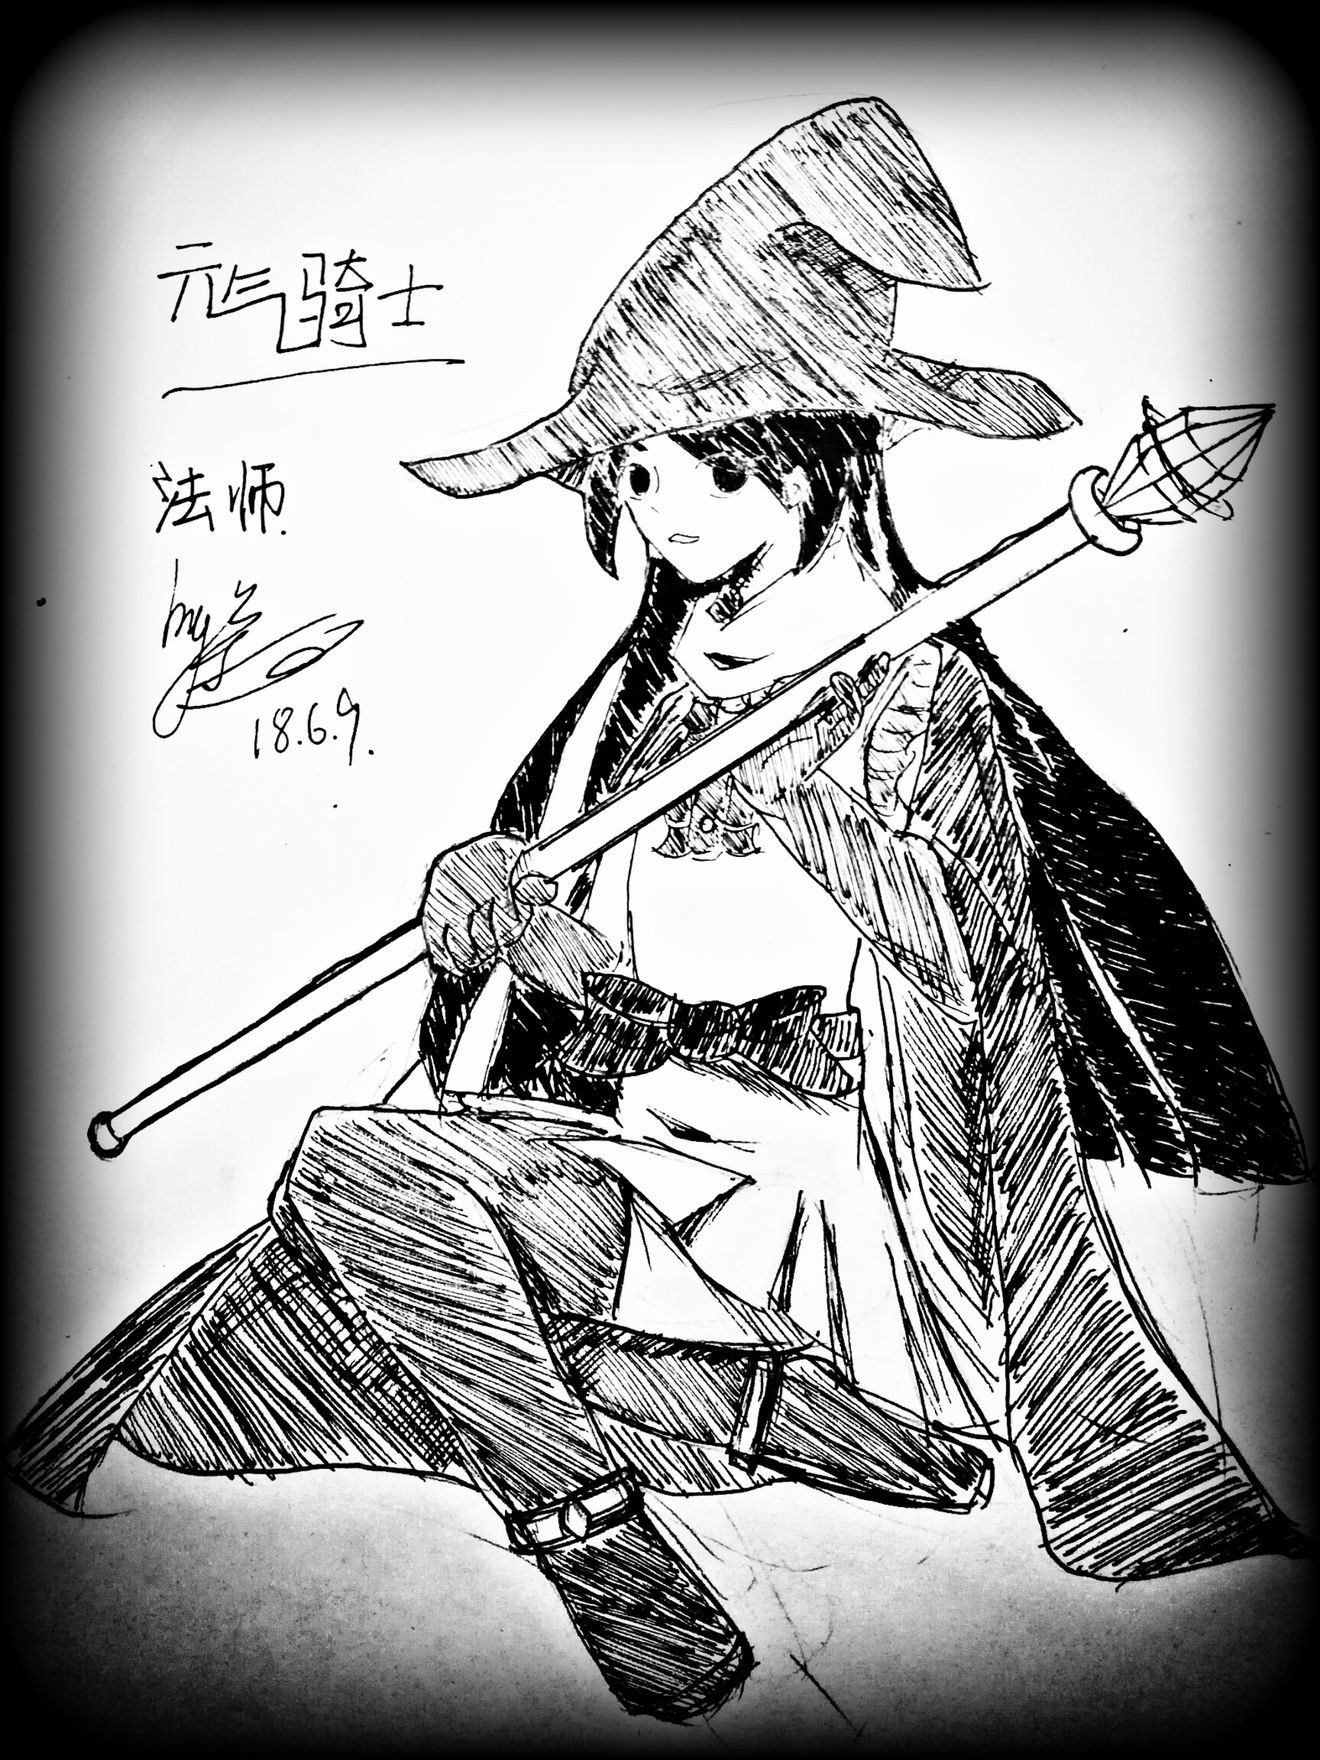 元气骑士
法师.
by
18.6.9.